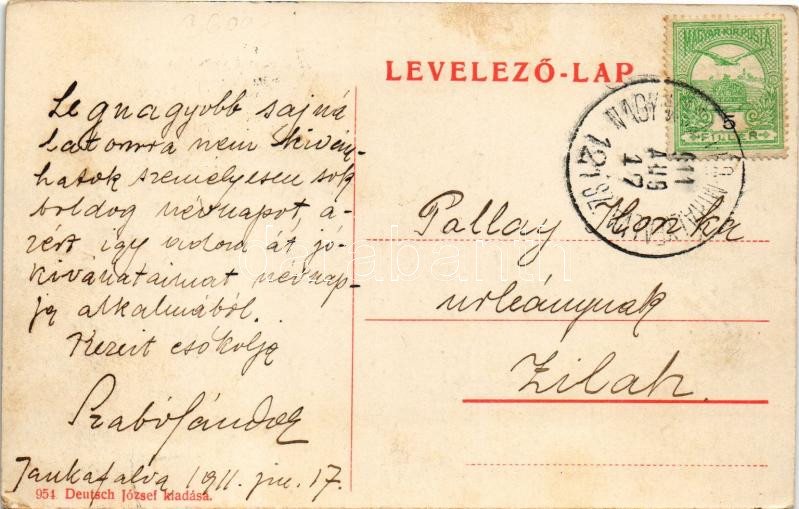 LEVELEZŐ-LAP
MAGYAR·KIR·POSTA
6
FILLÉR
NAGY
911
AUG
17
Legnagyobb sajná
latomra nem kíván-
hatok személyesen sok
boldog névnapot, a-
zért így adom át jó-
kívánataimat névnap-
ja alkalmából.
Kezeit csókolja
Szabó Sándor
1911. 17.
Pallay Ilonka
urleánynak
Zilah.
954 Deutsch József kiadása.
darabanth